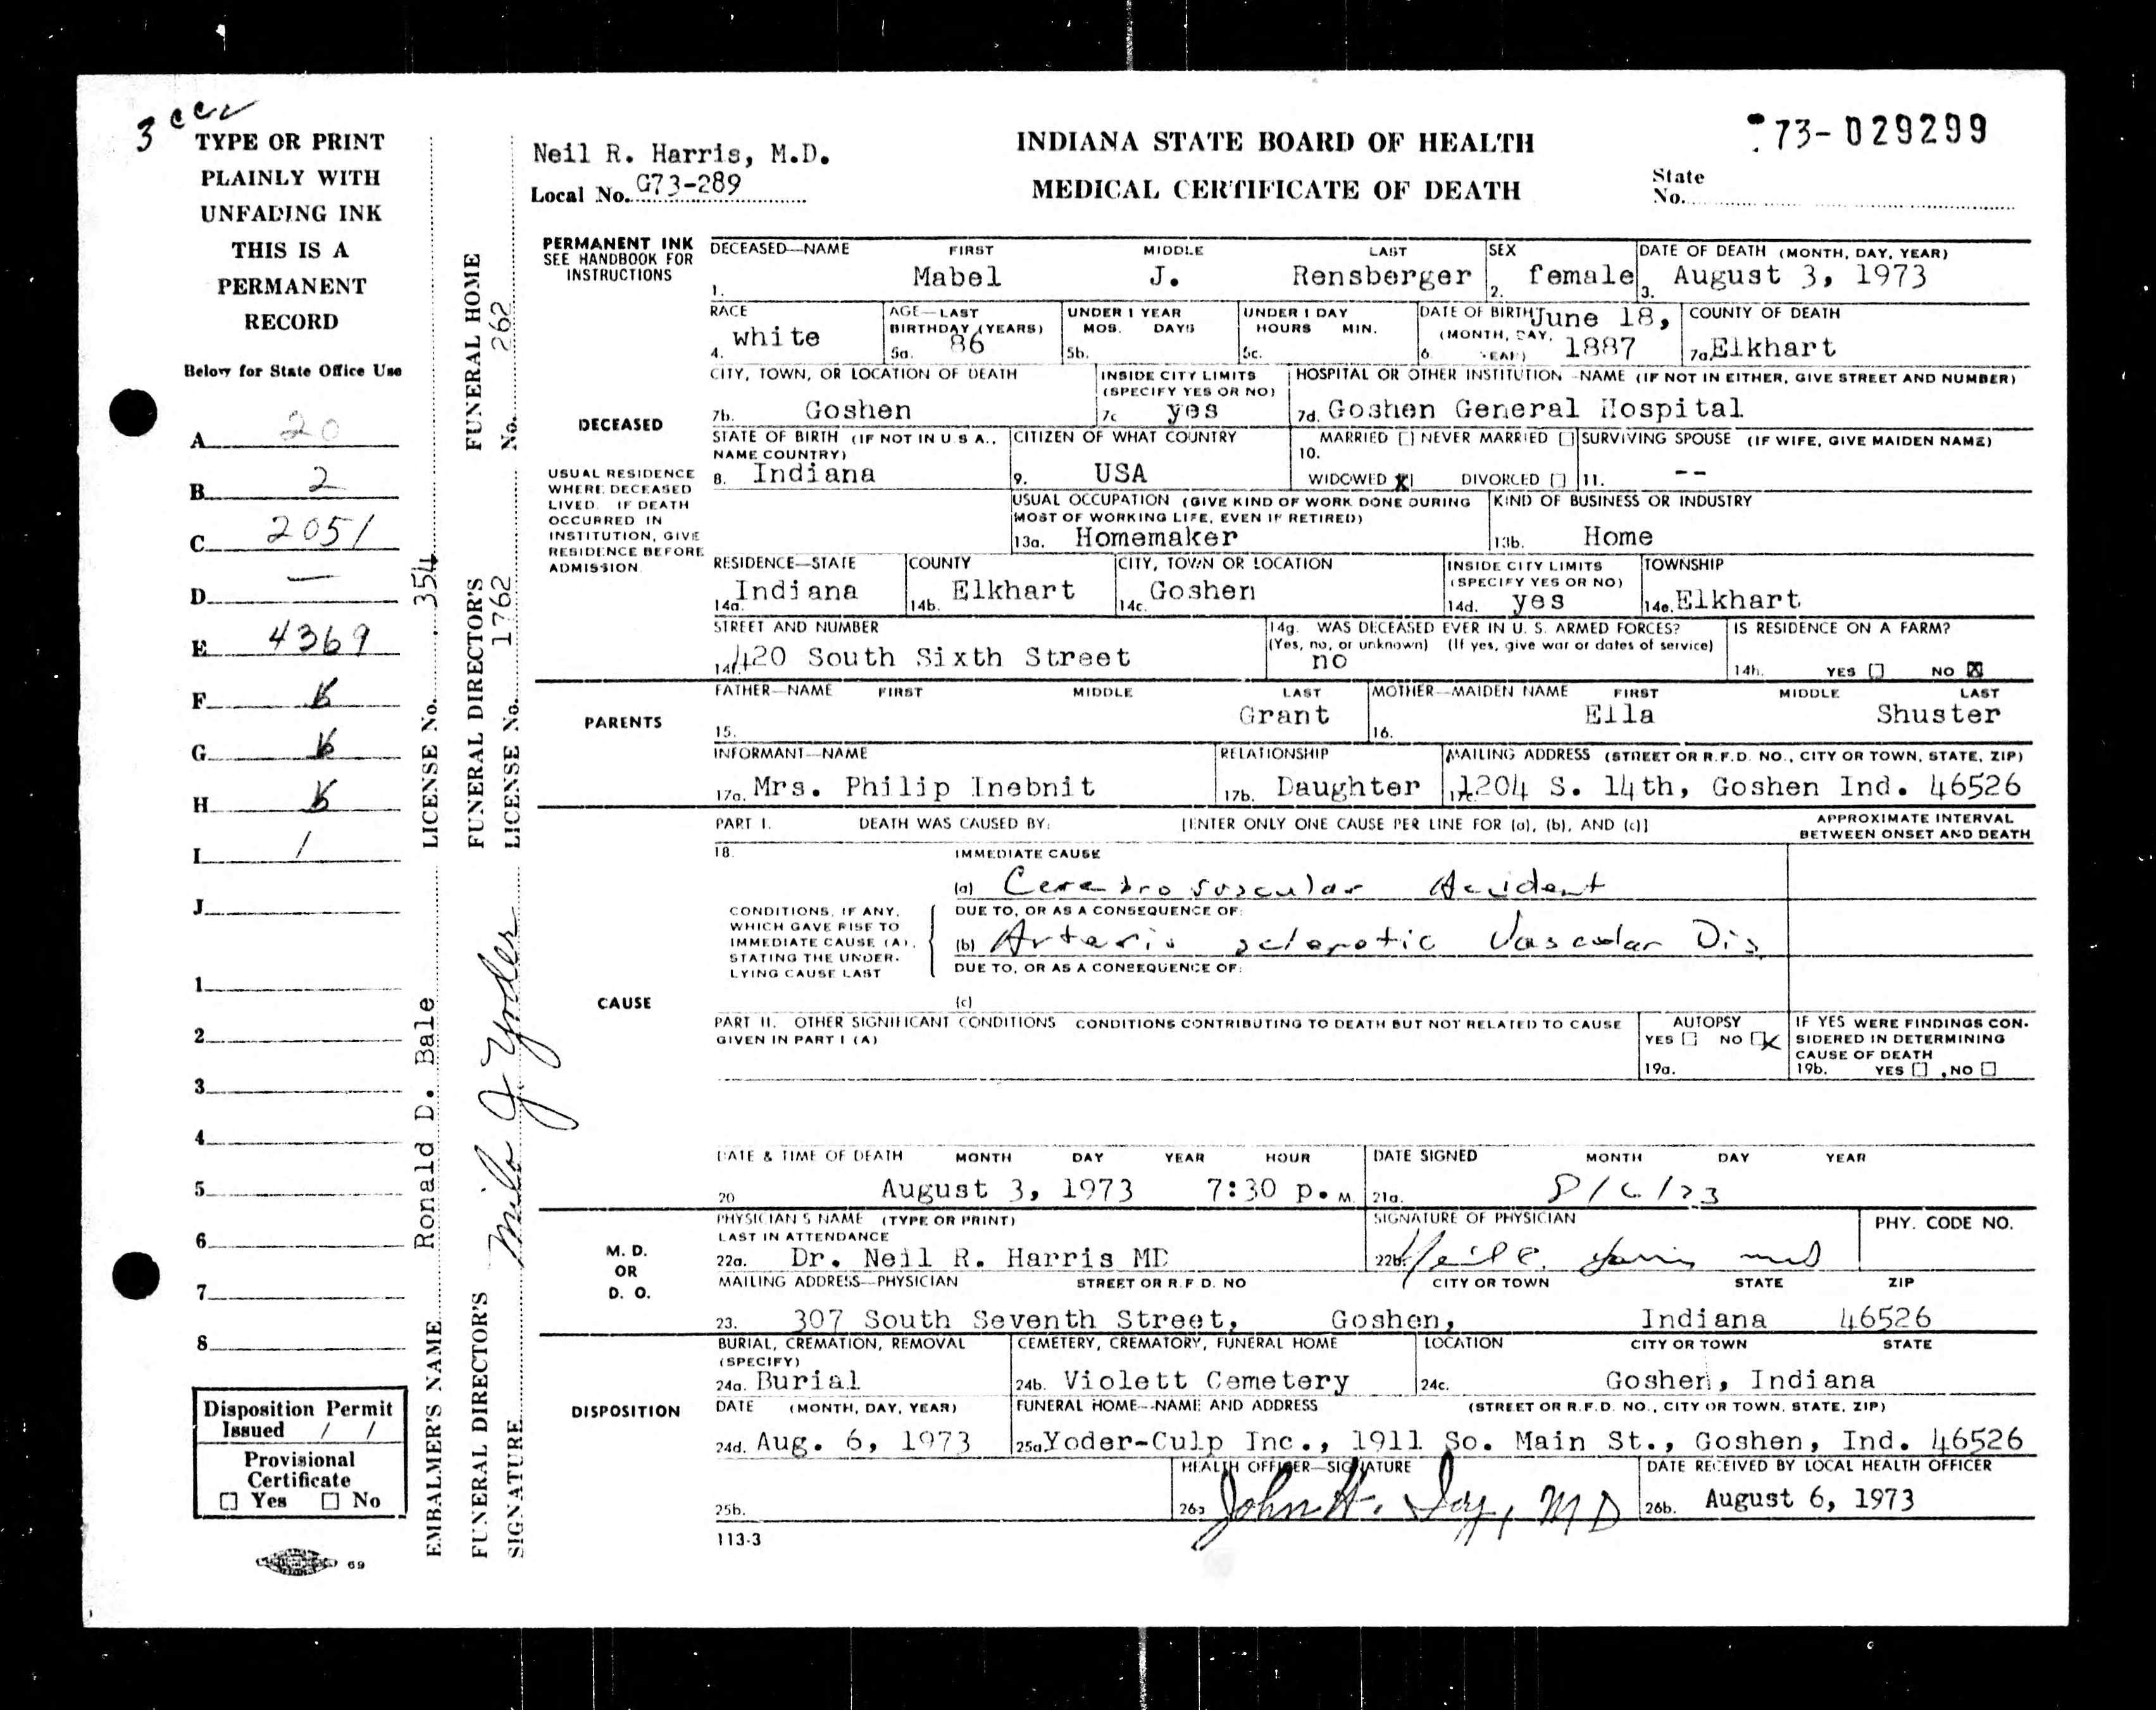 3
TYPE OR PRINT
PLAINLY WITH
UNFADING INK
THIS IS A
PERMANENT
RECORD
Below for State Office Use
A. 20
B. 2
C. 2051
D. —
E. 4369
F.
G.
H.
I. 1
J.
1.
2.
3.
4.
5.
6.
7.
8.
Disposition Permit
Issued / /
Provisional
Certificate
☐ Yes ☐ No
69
EMBALMER'S NAME Ronald D. Bale LICENSE No. 354
FUNERAL DIRECTOR'S SIGNATURE Milo J Yoder FUNERAL DIRECTOR'S LICENSE No. 1762 FUNERAL HOME No. 262
Neil R. Harris, M.D.
Local No. G73-289
INDIANA STATE BOARD OF HEALTH
MEDICAL CERTIFICATE OF DEATH
73-029299
State
No.
PERMANENT INK
SEE HANDBOOK FOR
INSTRUCTIONS
DECEASED—NAME FIRST MIDDLE LAST
1. Mabel J. Rensberger
SEX
2. female
DATE OF DEATH (MONTH, DAY, YEAR)
3. August 3, 1973
RACE
4. white
AGE—LAST
BIRTHDAY (YEARS)
5a. 86
UNDER 1 YEAR
MOS. DAYS
5b.
UNDER 1 DAY
HOURS MIN.
5c.
DATE OF BIRTH June 18,
(MONTH, DAY,
6. YEAR) 1887
COUNTY OF DEATH
7a. Elkhart
DECEASED
CITY, TOWN, OR LOCATION OF DEATH
7b. Goshen
INSIDE CITY LIMITS
(SPECIFY YES OR NO)
7c yes
HOSPITAL OR OTHER INSTITUTION -NAME (IF NOT IN EITHER, GIVE STREET AND NUMBER)
7d. Goshen General Hospital
STATE OF BIRTH (IF NOT IN U.S.A.,
NAME COUNTRY)
8. Indiana
CITIZEN OF WHAT COUNTRY
9. USA
MARRIED ☐ NEVER MARRIED ☐
10.
WIDOWED ☒ DIVORCED ☐
SURVIVING SPOUSE (IF WIFE, GIVE MAIDEN NAME)
11. --
USUAL RESIDENCE
WHERE DECEASED
LIVED. IF DEATH
OCCURRED IN
INSTITUTION, GIVE
RESIDENCE BEFORE
ADMISSION.
USUAL OCCUPATION (GIVE KIND OF WORK DONE DURING
MOST OF WORKING LIFE, EVEN IF RETIRED)
13a. Homemaker
KIND OF BUSINESS OR INDUSTRY
13b. Home
RESIDENCE—STATE
14a. Indiana
COUNTY
14b. Elkhart
CITY, TOWN OR LOCATION
14c. Goshen
INSIDE CITY LIMITS
(SPECIFY YES OR NO)
14d. yes
TOWNSHIP
14e. Elkhart
STREET AND NUMBER
14f. 420 South Sixth Street
14g. WAS DECEASED EVER IN U. S. ARMED FORCES?
(Yes, no, or unknown) (If yes, give war or dates of service)
no
IS RESIDENCE ON A FARM?
14h. YES ☐ NO ☒
PARENTS
FATHER—NAME FIRST MIDDLE LAST
15. Grant
MOTHER—MAIDEN NAME FIRST MIDDLE LAST
16. Ella Shuster
INFORMANT—NAME
17a. Mrs. Philip Inebnit
RELATIONSHIP
17b. Daughter
MAILING ADDRESS (STREET OR R.F.D. NO., CITY OR TOWN, STATE, ZIP)
17c. 1204 S. 14th, Goshen Ind. 46526
CAUSE
PART I. DEATH WAS CAUSED BY: [ENTER ONLY ONE CAUSE PER LINE FOR (a), (b), AND (c)]
APPROXIMATE INTERVAL
BETWEEN ONSET AND DEATH
18. IMMEDIATE CAUSE
(a) Cerebro vascular Accident
CONDITIONS, IF ANY,
WHICH GAVE RISE TO
IMMEDIATE CAUSE (A),
STATING THE UNDER-
LYING CAUSE LAST
DUE TO, OR AS A CONSEQUENCE OF:
(b) Arterio sclerotic Vascular Dis
DUE TO, OR AS A CONSEQUENCE OF:
(c)
PART II. OTHER SIGNIFICANT CONDITIONS CONDITIONS CONTRIBUTING TO DEATH BUT NOT RELATED TO CAUSE
GIVEN IN PART I (A)
AUTOPSY
YES ☐ NO ☒
19a.
IF YES WERE FINDINGS CON-
SIDERED IN DETERMINING
CAUSE OF DEATH
19b. YES ☐ , NO ☐
DATE & TIME OF DEATH MONTH DAY YEAR HOUR
20 August 3, 1973 7:30 p. M.
DATE SIGNED MONTH DAY YEAR
21a. 8/6/73
M. D.
OR
D. O.
PHYSICIAN'S NAME (TYPE OR PRINT)
LAST IN ATTENDANCE
22a. Dr. Neil R. Harris MD
SIGNATURE OF PHYSICIAN
22b. Neil R. Harris MD
PHY. CODE NO.
MAILING ADDRESS—PHYSICIAN STREET OR R.F.D. NO CITY OR TOWN STATE ZIP
23. 307 South Seventh Street, Goshen, Indiana 46526
DISPOSITION
BURIAL, CREMATION, REMOVAL
(SPECIFY)
24a. Burial
CEMETERY, CREMATORY, FUNERAL HOME
24b. Violett Cemetery
LOCATION CITY OR TOWN STATE
24c. Goshen, Indiana
DATE (MONTH, DAY, YEAR)
24d. Aug. 6, 1973
FUNERAL HOME—NAME AND ADDRESS (STREET OR R.F.D. NO., CITY OR TOWN, STATE, ZIP)
25a. Yoder-Culp Inc., 1911 So. Main St., Goshen, Ind. 46526
25b.
HEALTH OFFICER—SIGNATURE
26a John H. MD
DATE RECEIVED BY LOCAL HEALTH OFFICER
26b. August 6, 1973
113-3